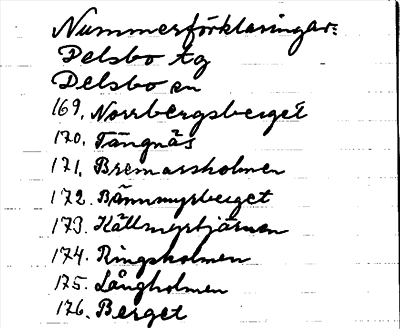 Nummerförklaringar:
Delsbo tg
Delsbo en
169. Norrbergsberget
170. Tångnäs
171. Bremarsholmen
172. Bännmyrberget
173. Källmyrtjärnen
174. Ringsholmen
175. Långholmen
176. Berget